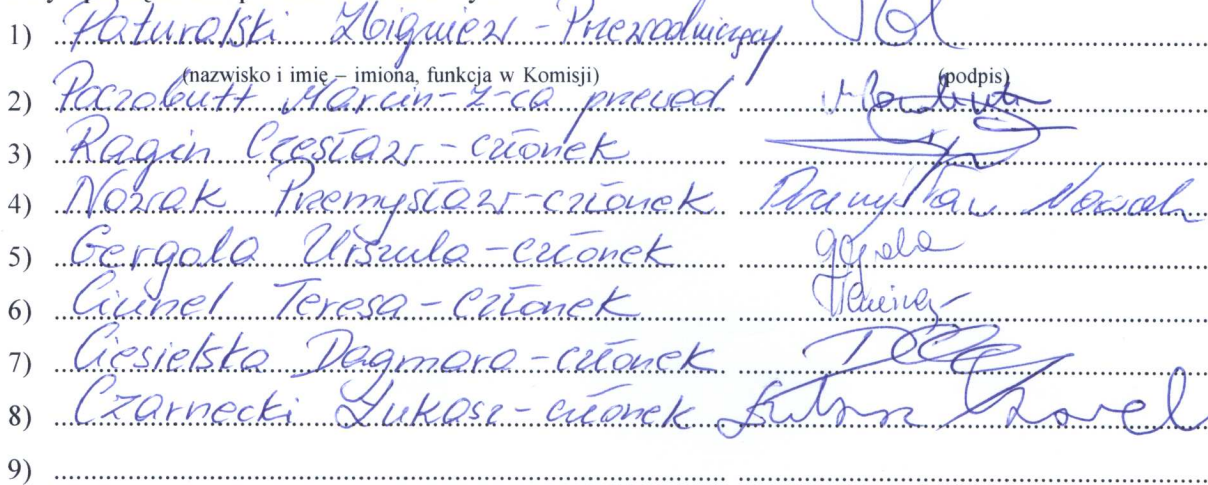 1) Paturalski Zbigniew - Przewodniczący
(nazwisko i imię – imiona, funkcja w Komisji) (podpis)
2) Paczobutt Marcin - z-ca przewod
3) Ragin Czesław - członek
4) Nowak Przemysław - członek Przemysław Nowak
5) Gergola Urszula - członek
6) Ciunel Teresa - członek
7) Ciesielska Dagmara - członek
8) Czarnecki Łukasz - członek
9)